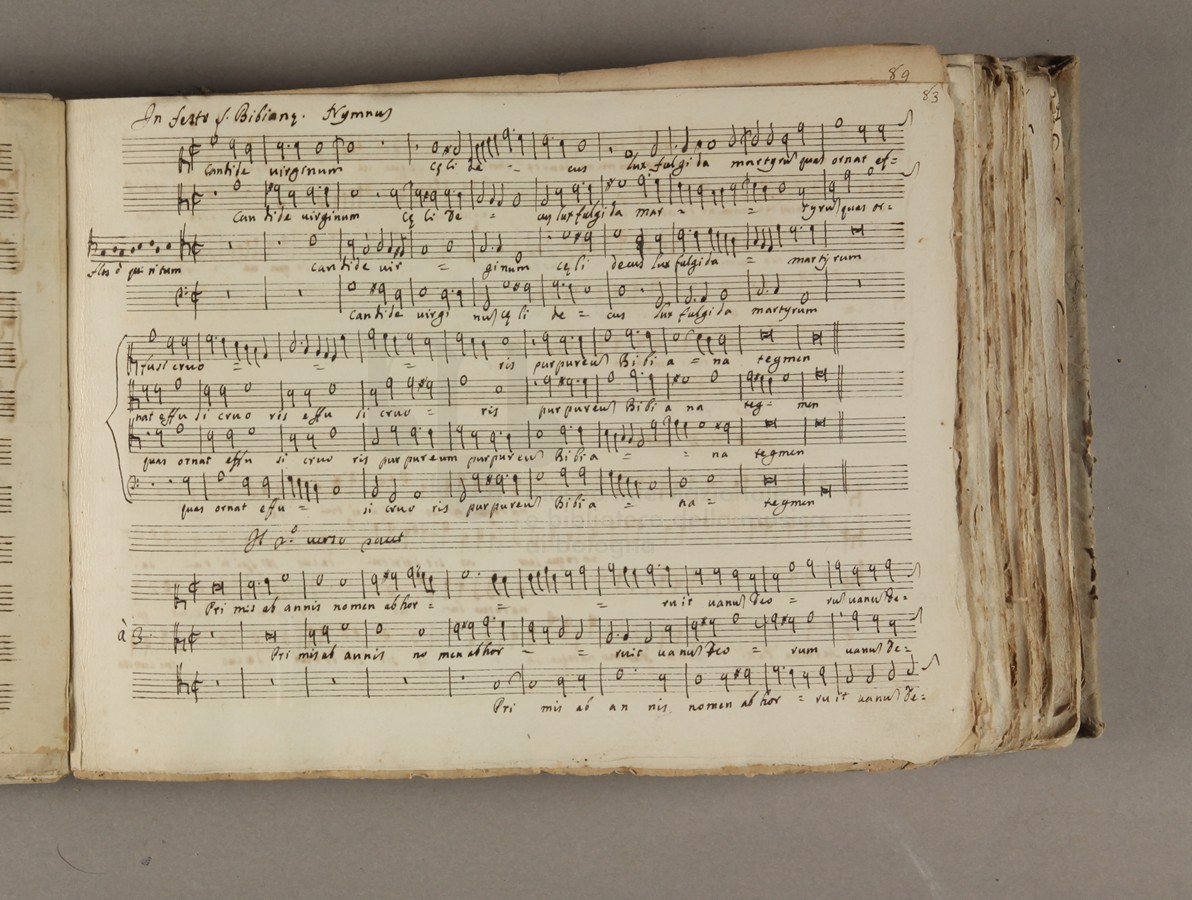 89
83
In festo S. Bibianę. Hymnus
Candide virginum cęli de = cus lux fulgida martyrum quas ornat ef=
Candide virginum cę li de = cus lux fulgi da mar = = tyrum quas or=
candide vir = ginum cę li decus lux fulgida = martyrum
candide virgi num cę li de = cus lux fulgi da martyrum
fusi cruo = = = ris purpureum Bi bi a = na tegmen
nat effu si cruo ris effu si cruo = ris purpureum Bibi a na teg= men
quas ornat effu si cruo ris purpureum purpureum Bibi a = = na tegmen
quas ornat effu = si cruo ris purpureum Bibi a = na = tegmen
verso
Pri mis ab annis nomen abhor = = = ruit vanum Deo = rum vanum De=
à 3
Pri mis ab annis no men abhor = = ruit vanum Deo = rum vanum De=
Pri mis ab an nis nomen ab hor = ru it vanum De=